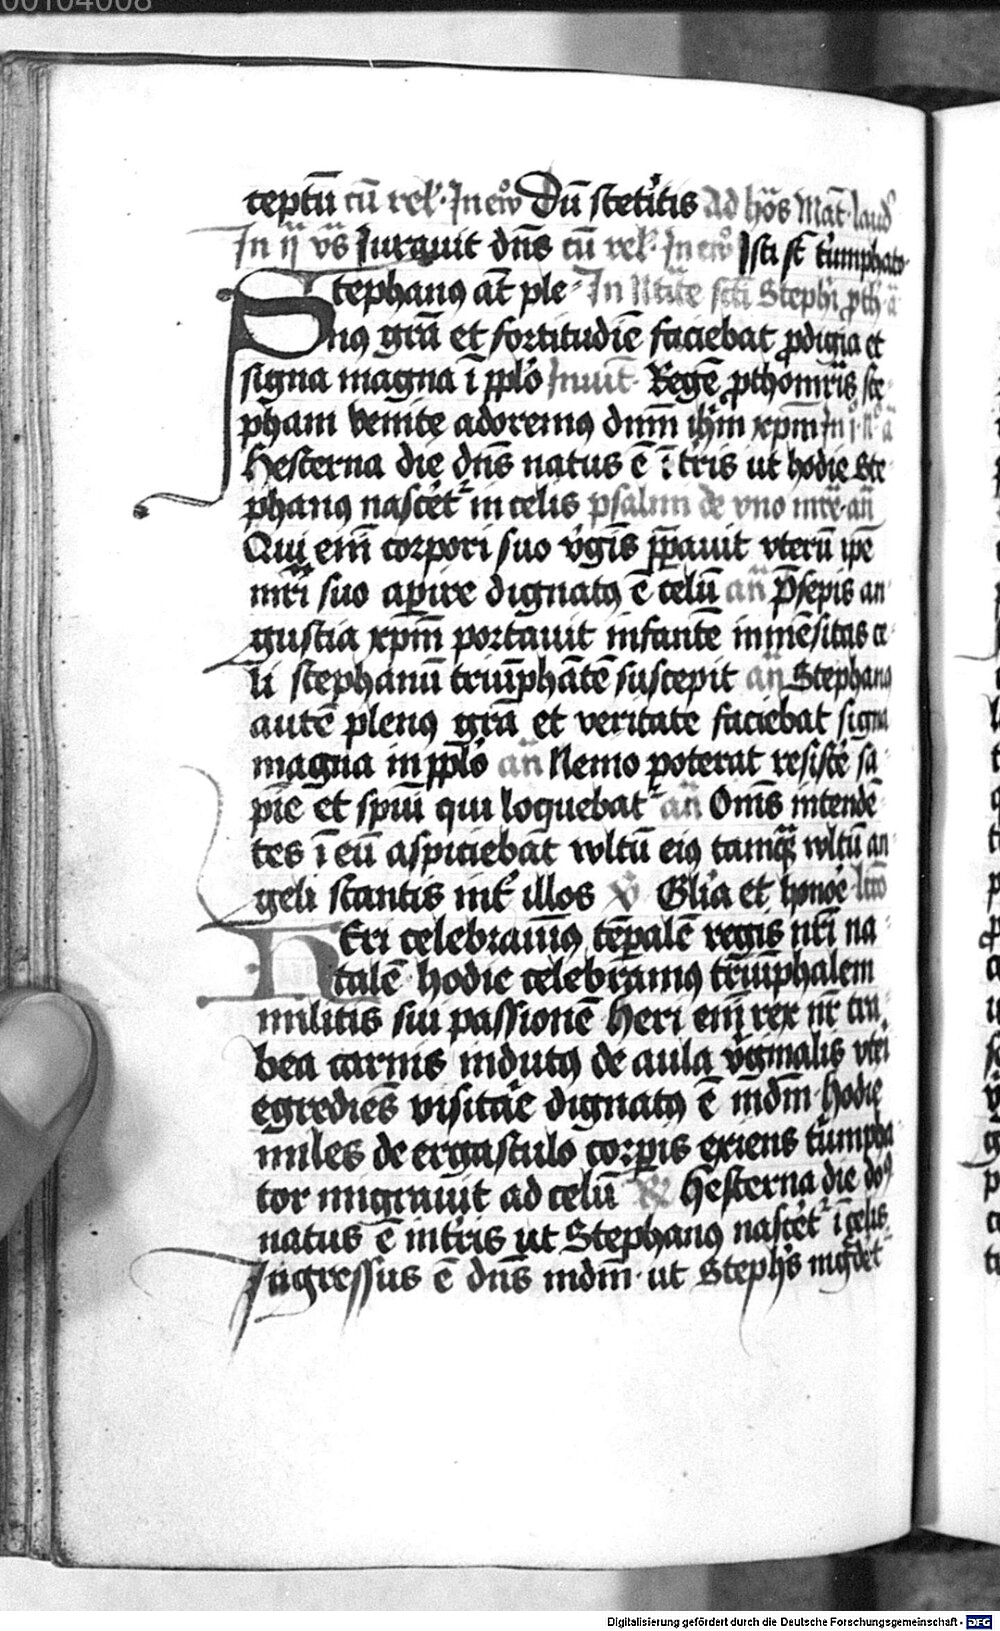 00104008
ceptū cū rel. In euō Dū steteritis Ad hōs Mat. laud
In ij vs̄ Jurauit dn̄s cū rel. In euō Isti sūt triumphato
Stephanꝰ at̄ ple In Nātīte sctī Stephī ꝓth a
nꝰ grā et fortitudīe faciebat ꝓdigia et
signa magna ī pplo Inuit. Regē ꝓthomr̄is ste
phani venite adoremꝰ dnm̄ ihm̄ xpm̄ In j n̄ a
Hesterna die dn̄s natus ē ī tr̄is ut hodie Ste
phanꝰ nascet᷑ in celis psalmi de vno mr̄e an̄
Qui enī corpori suo v̓gīs p̄pauit vterū ipē
mr̄i suo aꝑire dignatꝰ ē celū an̄ P̄sepis an
gustia xpm̄ portauit infantē inmēsitas ce
li stephanū triūphātē suscepit an̄ Stephanꝰ
autē plenꝰ grā et veritate faciebat signa
magna in pplo an̄ Nemo poterat resistē sa
piē et spiui qui loquebat᷑ an̄ Om̄s intendē
tes ī eū aspiciebāt vultū eiꝰ tamqᷓ vultū an
geli stantis int̓ illos ℣ Glīa et honoē lcō
HEri celebrauimꝰ tēꝑalē regis nr̄i na
talē hodie celebramꝰ triūphalem
militis sui passionē Heri enī rex nr̄ tra
bea carnis indutꝰ de aula v̓ginalis vteri
egrediēs visitāe dignatꝰ ē mdm̄ hodie
miles de ergastulo corꝑis exiens triūpha
tor migrauit ad celū ℟ Hesterna die do9
natus ē in tr̄is ut Stephanꝰ nascet᷑ ī celis
Ingressus ē dn̄s mdm̄ ut Stephs ingr̄det᷑
Digitalisierung gefördert durch die Deutsche Forschungsgemeinschaft - DFG